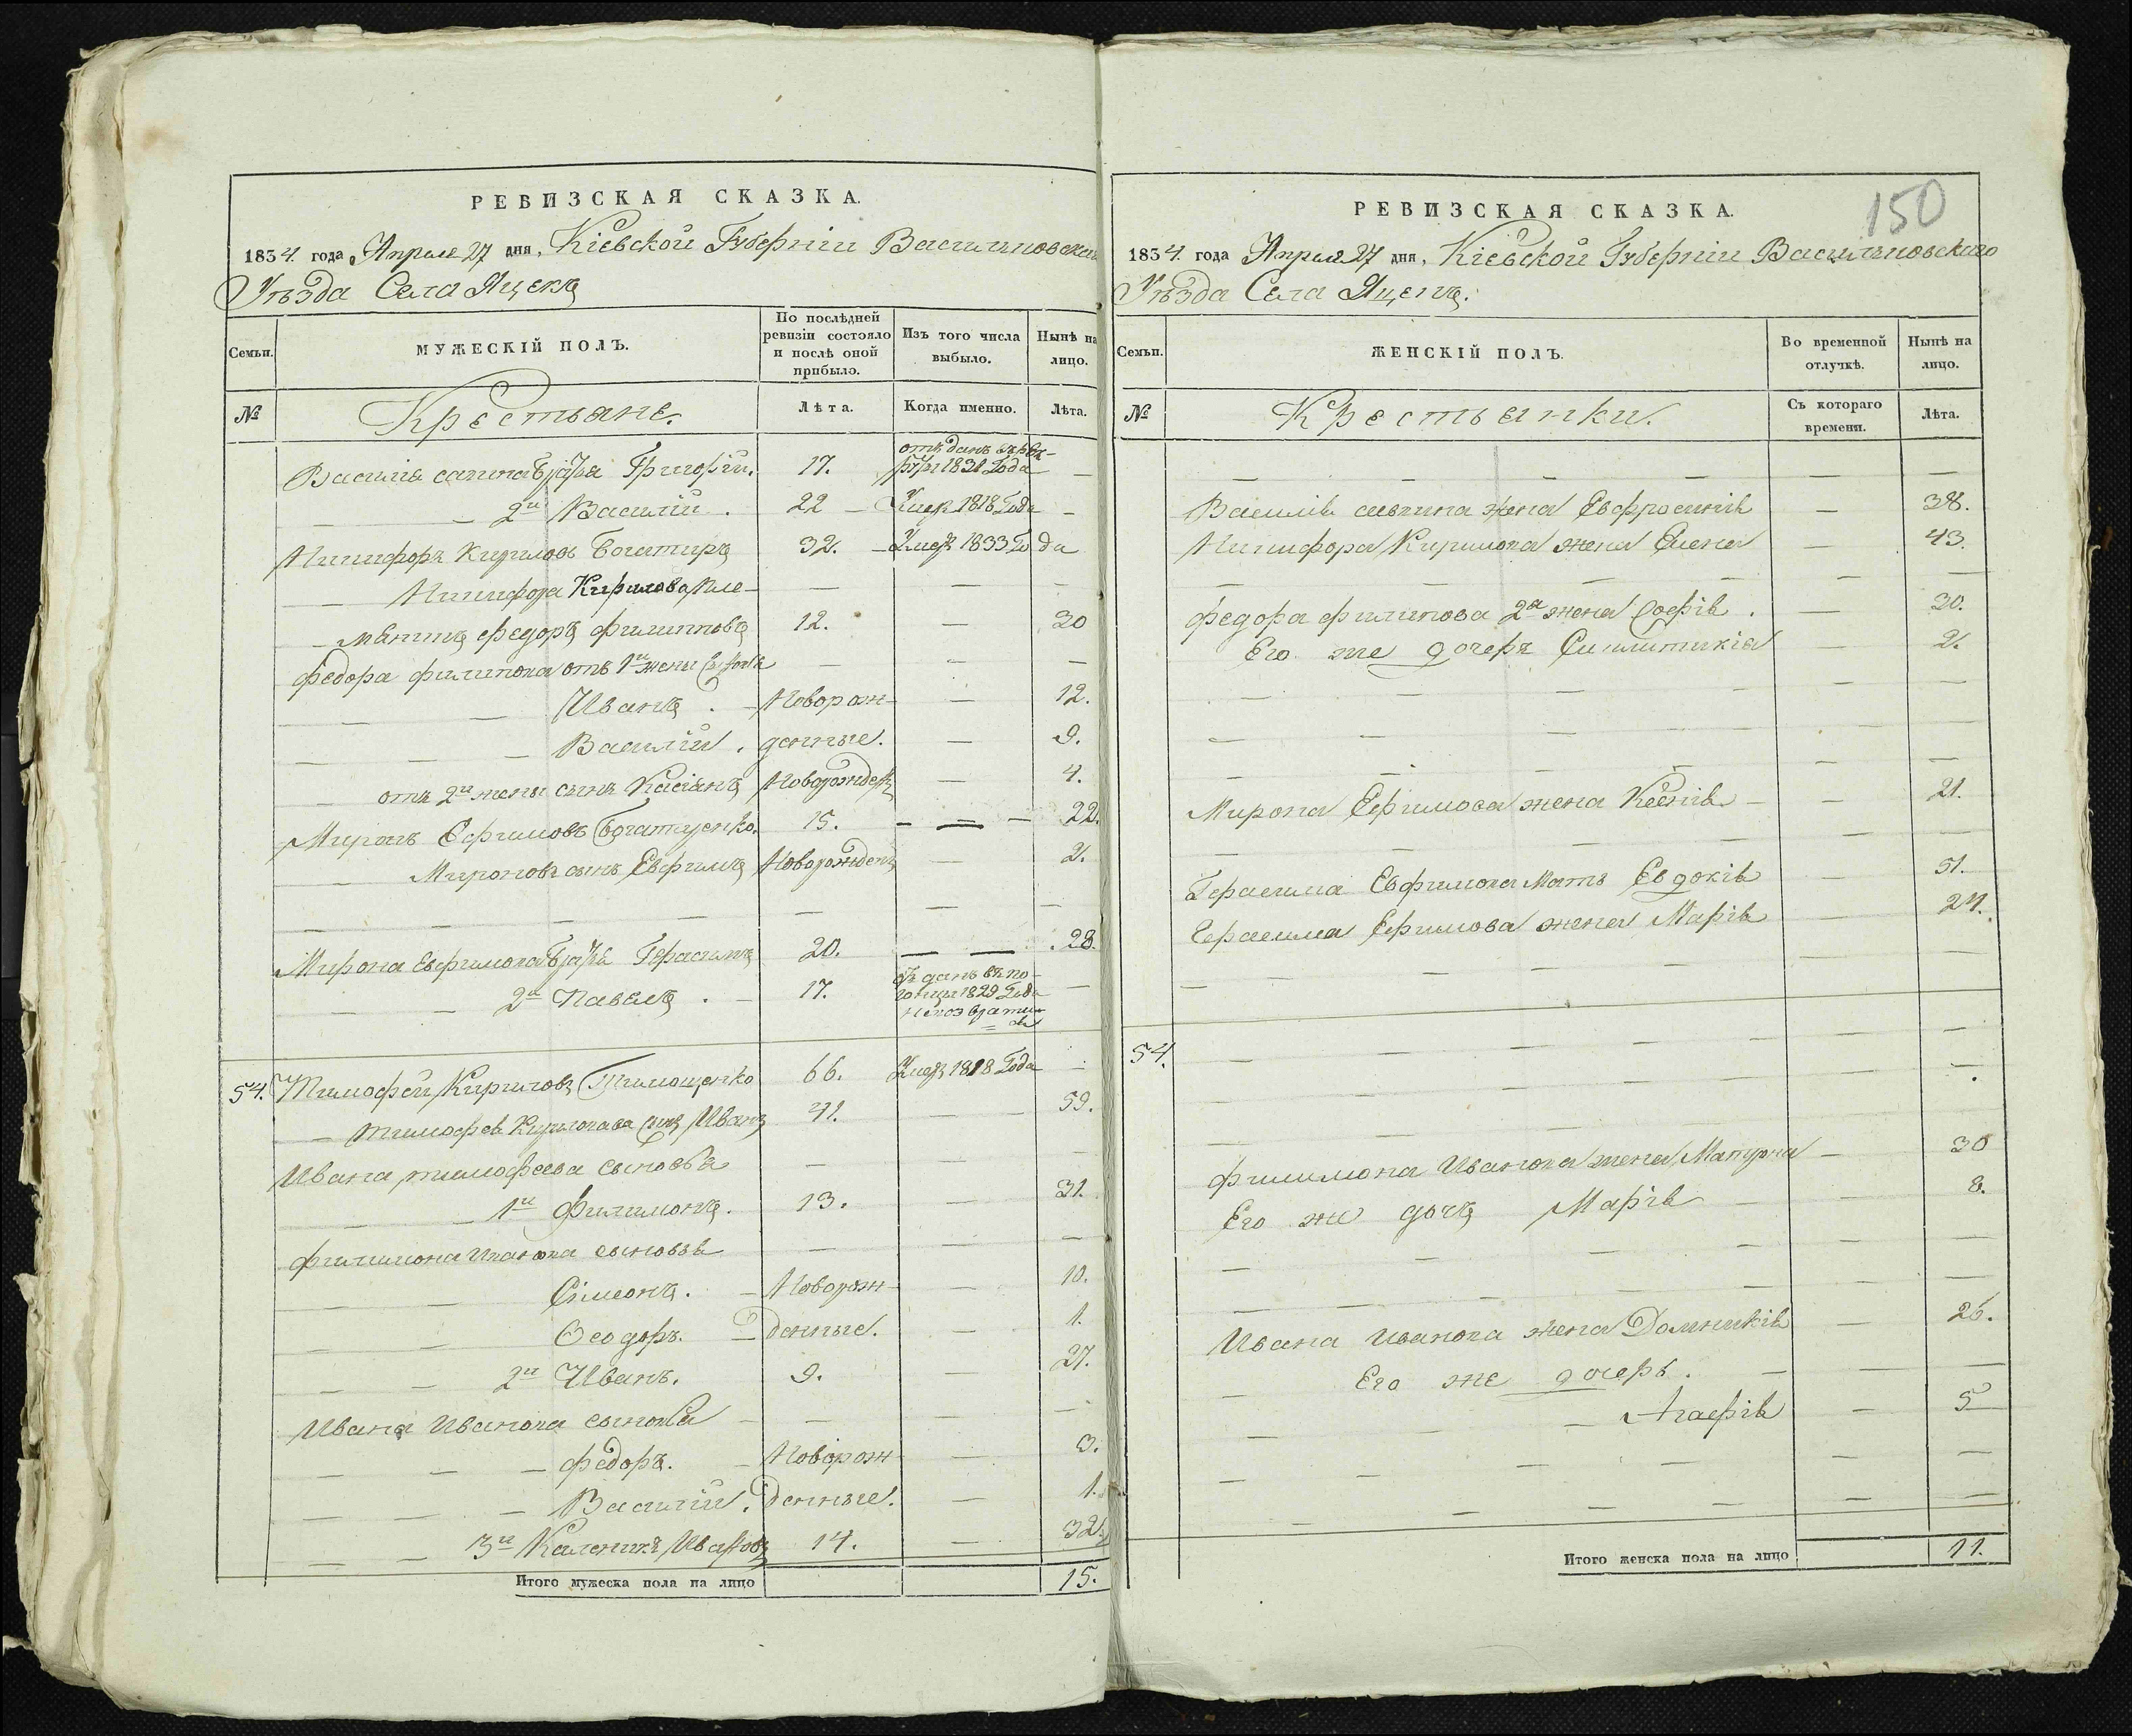 РЕВИЗСКАЯ СКАЗКА.
1834. года Апреля 27 дня, Кіевской Губерніи Васильковска
Уѣзда Села Яцекъ
Семьи.
МУЖЕСКІЙ ПОЛЪ.
По послѣдней ревизіи состояло и послѣ оной прибыло.
Изъ того числа выбыло.
Нынѣ на лицо.
№
Крестьяне.
Лѣта.
Когда именно.
Лѣта.
Василія братья Григорій. 17. отданъ въ рек-
руты 1831 Года —
— 2й Василій. 22 — Умеръ 1818 Года —
Никифоръ Кириловъ Богатиръ 32. — Умеръ 1833 Го да
— Никифора Кирилова пле- — — —
— мянникъ Федоръ Филиповъ 12. — 20
Федора Филипова отъ 1й жены сыновья — — —
— — — Иванъ. — Новорож- — 12.
— — — Василій. денные. — 9.
— отъ 2й жены сынъ Касіанъ Новорожденъ — 4.
Миронъ Ефимовъ Богатиренко. 15. — — — 22.
— Мироновъ сынъ Евфимъ Новорожденъ — 2.
— — — — — —
Мирона Евфимова братья Герасимъ 20. — — 28.
— — 2й Павелъ. — 17. отданъ въ по-
гонцы 1829 Года —
не возврати
= ся
54. Тимофей Кириловъ Тимощенко 66. Умеръ 1818 Года —
— Тимофея Кирилова сынъ Иванъ 41. — — 59.
Ивана Тимофеева сыновья — — —
— — — 1й Филимонъ. 13. — 31.
Филимона Иванова сыновья — — —
— — — Симеонъ. — Новорож- — 10.
— — — Ѳеодоръ. — денные. — 1.
— — 2й Иванъ. 9. — 27.
Ивана Иванова сыновья — — — —
— — — Федоръ. — Новорож- — 3.
— — — Василій. денные. — 1.
— — 3й Каленикъ Ивановъ 14. — 32.
Итого мужеска пола на лицо 15.
150
РЕВИЗСКАЯ СКАЗКА.
1834. года Апреля 27 дня, Кіевской Губерніи Васильковскаго
Уѣзда Села Яцекъ.
Семьи.
ЖЕНСКІЙ ПОЛЪ.
Во временной отлучкѣ.
Нынѣ на лицо.
№
Крестьянки.
Съ котораго времени.
Лѣта.
— — — — — —
Василія жена Евфросинія — 38.
Никифора Кирилова жена Елена — 43.
— — — — — —
Федора Филипова 2я жена Софія. — 30.
Его же дочерь Синклитикія — 2.
— — — — — —
— — — — — —
— — — — — —
Мирона Ефимова жена Ксенія — — 21.
— — — — — —
Герасима Евфимова Мать Евдокія — 51.
Герасима Ефимова жена Марія — 24.
— — — — — —
54. — — — — —
— — — — —
— — — — —
Филимона Иванова жена Матрона — 30
Его же дочь Марія — — 8.
— — — — — —
— — — — — —
Ивана Иванова жена Домникія — 26.
— Его же дочерь. — — —
— — Агафія — 5
— — — — — —
— — — — — —
Итого женска пола на лицо 11.